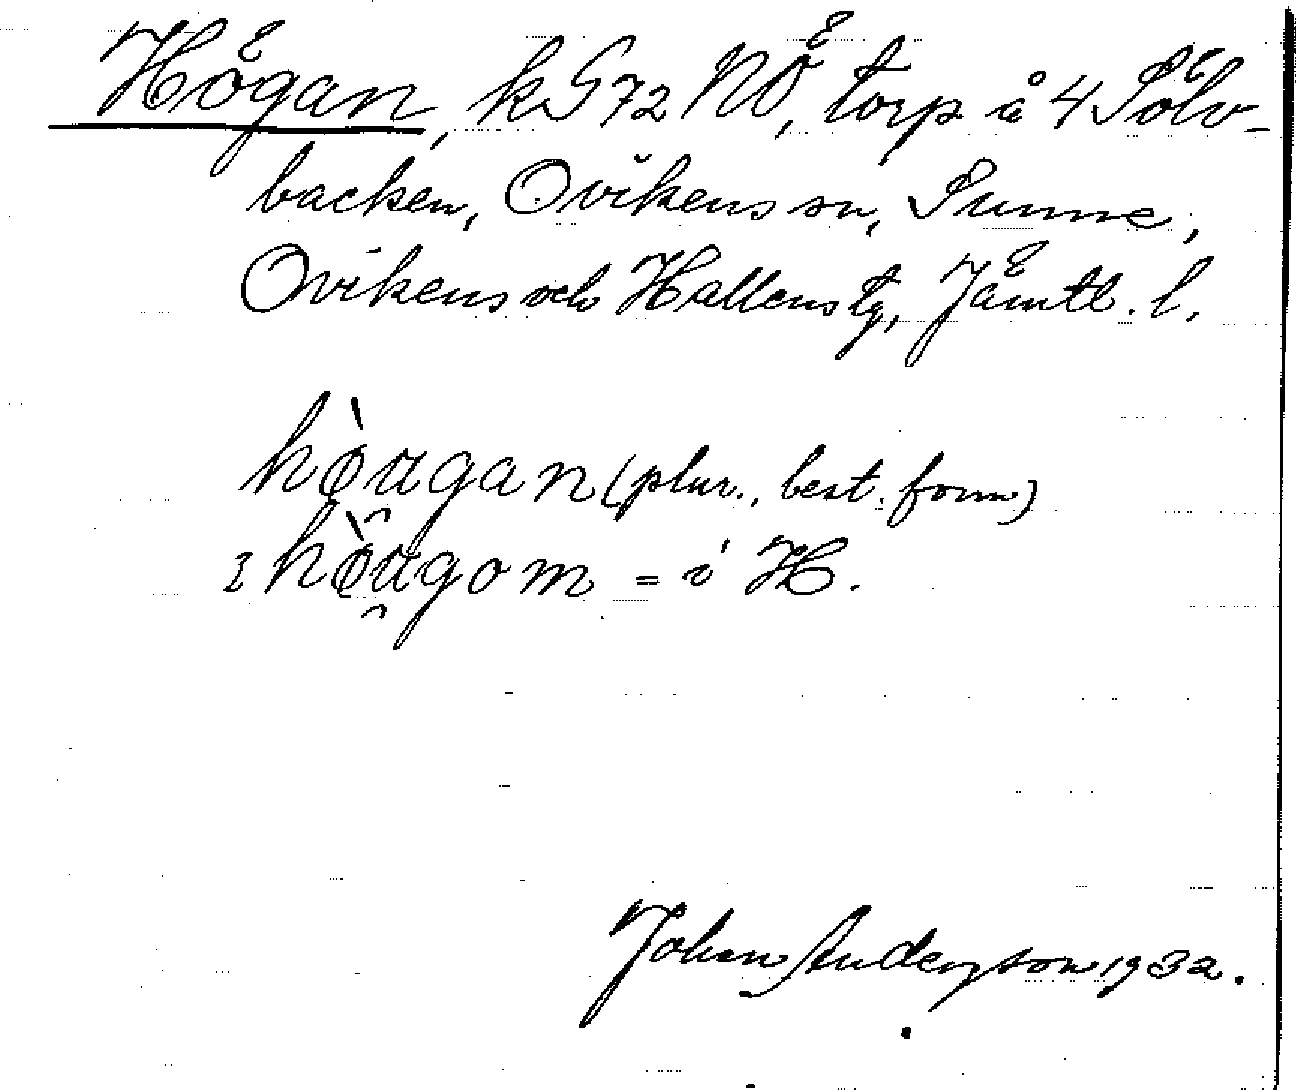 Högan, kG72 NÖ, torp å 4 Sölv-
backen, Ovikens sn, Sunne,
Ovikens och Hallens tg, Jämtl. l.
hòu̯gan (plur., best. form)
ɪ hòu̯gom = i H.
Johan Anderzson 1932.